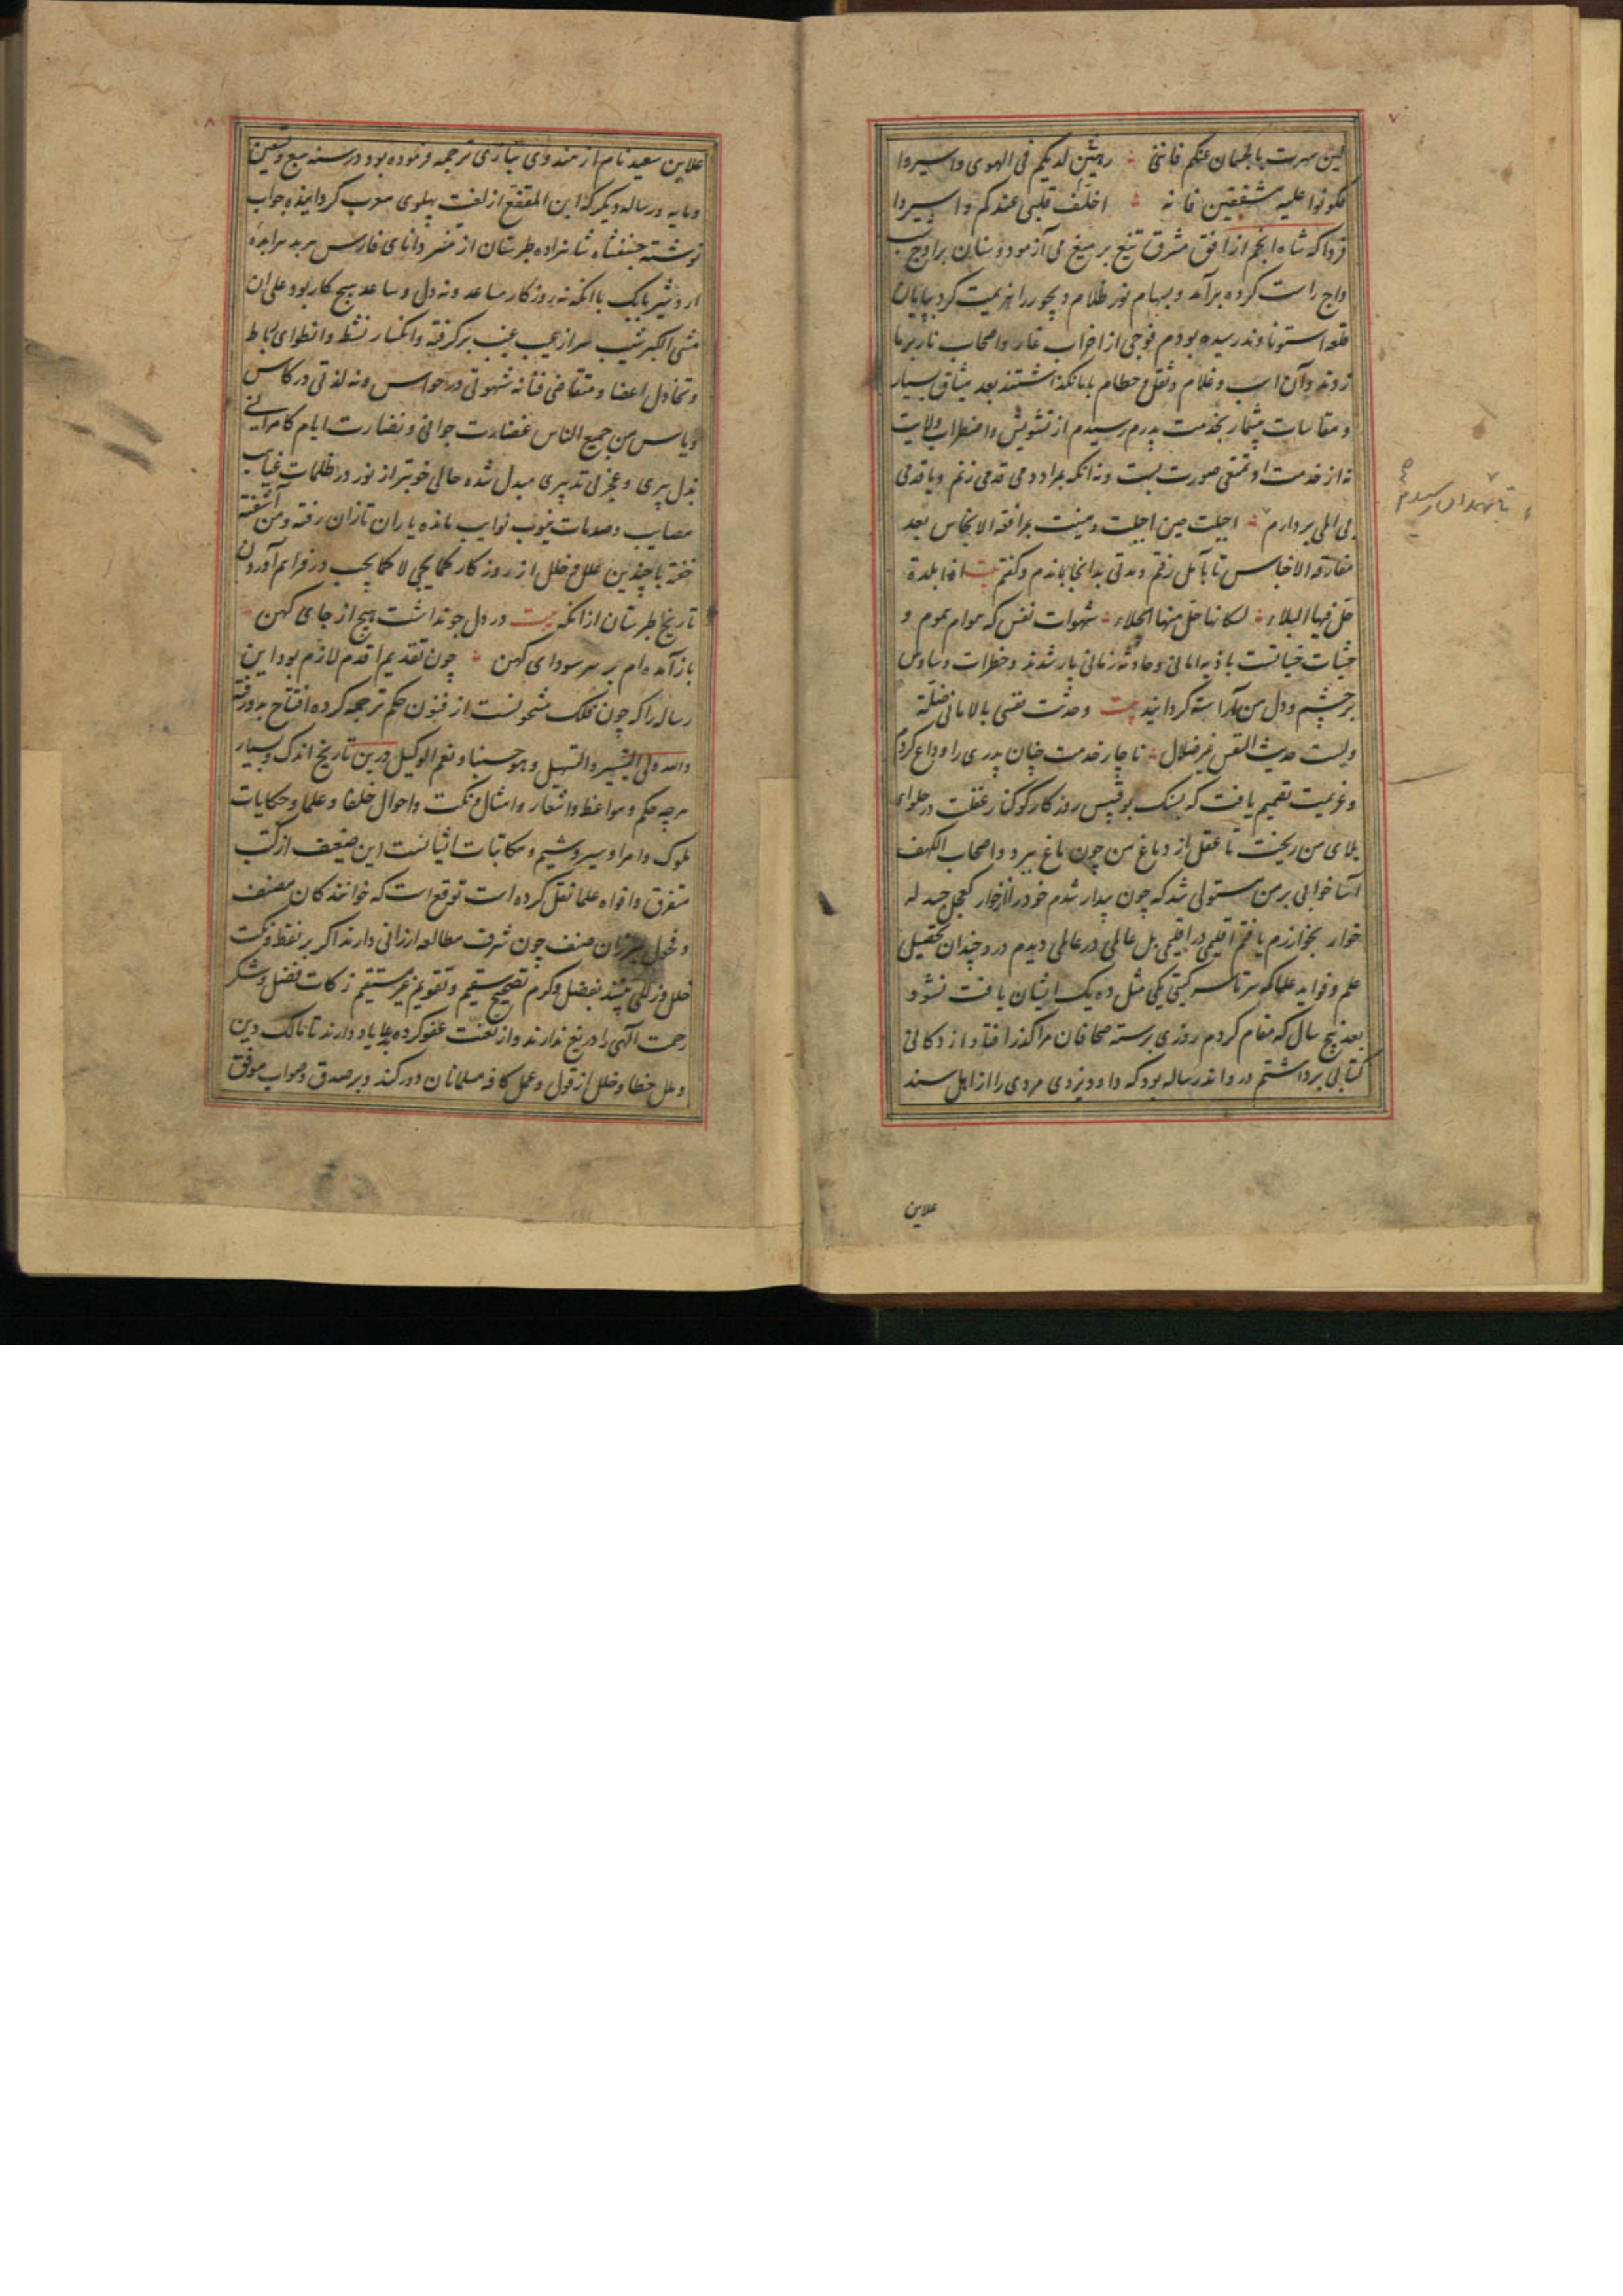 ۷
لئن سرت بالجثمان عنکم فاننی ؞ رهین لدیکم فی الهوی واسیروا
فکونوا علیه مشفقین فانه ؞ اخلف قلبی عندکم واسیروا
فرداکه شاه انجم از افق مشرق تیغ بر میغ می آزمود و سنان بر اوج
واج راست کرده برآمد و بسهام نور ظلام دیجور را هزیمت کرد بپایان
قلعه استوناوند رسیده بودم فوجی از احزاب غار و اصحاب نار بر ما
زدند و آن اسب و غلام و ثقل و حطام بابانکذاشتند بعد میثاق بسیار
و مقاسات بیشمار بخدمت پدرم رسیدم از تشویش و اضطراب ولایت
نه از خدمت او تمتعی صورت بست و نه انکه بمراد دمی قدمی زنم و یا قدمی
بی المی بردارم ؞ اجبلت حین اجبلت و منیت بمرافقه الانجاس بعد
مفارقه الاجناس تا بآمل رفتم و مدتی بدانجا بماندم و کفتم بیت اذا بلدة
حل فیها البلاء ؞ لسکانها حل منها الجلاء ؞ شهوات نفس که هوام هموم و
خبثات خیانتست باذیه امانی و حادثه زمانی یار شدند و خطرات وساوس
بر چشم و دل من آراسته کردانید بیت وحدثت نفسی بالامانی ضلة
ولیست حدیث النفس غیر ضلال ؞ ناچار خدمت چنان پدری را وداع کردم
و عزیمت تصمیم یافت که بسنک بوقبیس روزکار کوکنار غفلت در حلوای
بلای من ریخت تا عقل از دماغ من چون ماغ بپرد و اصحاب الکهف
آسا خوابی بر من مستولی شد که چون بیدار شدم خود را از خوار کعجل جسد له
خوار بخوارزم یافتم اقلیمی در اقلیمی بل عالمی در عالمی دیدم در و چندان تحصیل
علم و فواید علما که سرتاسر کیتی یکی مثل ده یک ایشان یافت نشود
بعد پنج سال که مقام کردم روزی برسته صحافان مرا کذر افتاد از دکانی
کتابی برداشتم درو اند رساله بود که داود یزدی مردی را از اهل سند
تا بهمدان رسیدم
علاین
۸
علاین سعید نام از هندوی بتازی ترجمه فرموده بود در سنه سبع وتسعین
ومایه ورساله دیکر که ابن المقفع از لغت پهلوی معرب کردانیده جواب
نوشته جشنفشاه شاهزاده طبرستان از تنسر دانای فارس هربد هرابده
اردشیر بابک با انکه نه روزکار مساعد و نه دل و ساعد بهیچ کار بود علی ان
مشی الکبر شیب سر از جیب عیب برکرفته وانکسار نشط وانطوای بساط
و تخاذل اعضا و متقاضی فنا نه شهوتی در حواس و نه لذتی در کاس
و یاس من جمیع الناس غضارت جوانی و نضارت ایام کامرانی
بذل پیری و عجز بی تدبیری مبدل شده حالی خوبتر از نور در ظلمات غیاهب
مصایب و صدمات ینوب نوایب مانده یاران تازان رفته ومن آشفته
خفته با چندین علل و خلل از روزکار کمایجی لا کمایجب در فراهم آوردن
تاریخ طبرستان از انکه بیت در دل چو نداشت هیچ از جای کهن ؞
باز آمده ام بر سر سودای کهن ؞ چون تقدیم اقدم لازم بود این
رساله را که چون فلک مشحونست از فنون حکم ترجمه کرده افتتاح بدورفته
والله ولی التیسیر والتسهیل وهو حسبنا ونعم الوکیل درین تاریخ اندک و بسیار
هرچه حکم و مواعظ و اشعار و امثال و نکت و احوال خلفا و علما و حکایات
ملوک و امرا و سیر و شیم و مکاتبات اثبانست این ضعیف از کتب
متفرق و افواه علما نقل کرده است توقع است که خوانندکان مصنف
و فحول مبرزان صنف چون شرف مطالعه ارزانی دارند اکر بر نقط ونکت
خلل و زللی بینند بفضل و کرم تصحیح سقیم و تقویم غیر مستقیم زکات فضل و شکر
رحمت الهی را دریغ ندارند و از تعنت عفو کرده بدعا یاد دارند تا مالک دین
و علل خطا و خلل از قول و عمل کافه مسلمانان دور کند و بر صدق و صواب موفق